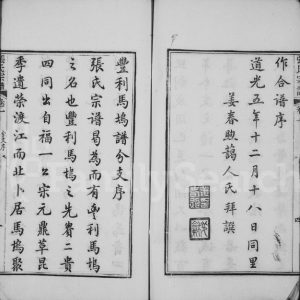 作合譜序
道光五年十二月十八日同里
姜春煦藹人氏拜譔
豐利馬塢譜分支序
張氏宗譜曷為而有豐利馬塢
之名也豐利馬塢之先賢二貴
四同出自福一公宋元鼎革昆
季遺榮渡江而北卜居馬塢聚